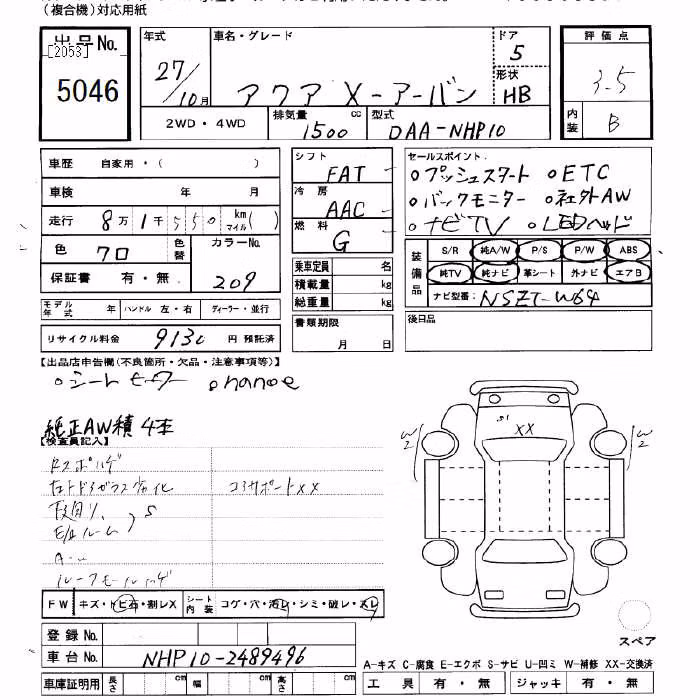 (複合機)対応用紙
出品No.
[2053]
5046
年式
27/10月
車名・グレード
アクア X-アーバン
ドア
5
形状
HB
評価点
3.5
内装
B
2WD・4WD
排気量
1500
cc
型式
DAA-NHP10
車歴 自家用・( )
車検 年 月
走行 8万1千550 km マイル( )
色 クロ 色替
カラーNo.
209
保証書 有・無
シフト
FAT
冷房
AAC
燃料
G
乗車定員 名
積載量 kg
総重量 kg
セールスポイント
○プッシュスタート ○ETC
○バックモニター ○社外AW
○ナビTV ○LEDヘッド
装備品
S/R 純A/W P/S P/W ABS
純TV 純ナビ 革シート 外ナビ エアB
ナビ型番: NSZT-W64
モデル年式 年 ハンドル 左・右 ディーラー・並行
書類期限
月 日
後日品
リサイクル料金 9130 円 預託済
【出品店申告欄(不良箇所・欠品・注意事項等)】
○シートヒーター ○nanoe
純正AW積 4本
【検査員記入】
コアサポートXX
S
A
ルーフモール
W2
S1
XX
W2
スペア
FW キズ・トビ石・割レX
シート内装 コゲ・穴・汚レ・シミ・破レ・スレ
登録No.
車台No. NHP10-2489496
車庫証明用 長さ cm 幅 cm 高さ cm
A-キズ C-腐食 E-エクボ S-サビ U-凹ミ W-補修 XX-交換済
工具 有・無 ジャッキ 有・無